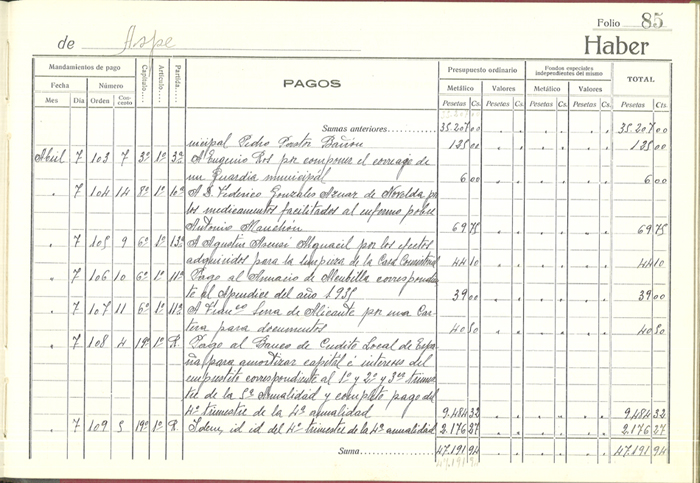 Folio 85
de Aspe Haber
Mandamientos de pago Capítulo.... Artículo.... Partida.... PAGOS Presupuesto ordinario Fondos especiales independientes del mismo TOTAL
Fecha Número Metálico Valores Metálico Valores
Mes Día Orden Concepto Pesetas Cs. Pesetas Cs. Pesetas Cs. Pesetas Cs. Pesetas Cts.
Sumas anteriores 35.207 00 35.207 00
nicipal Pedro Pastor 135 00 135 00
Abril 7 103 7 3º 1º 3ª A Eugenio Ros por componer el correaje de
un Guardia municipal 6 00 6 00
" 7 104 14 8º 1º 16ª A D. Federico Gonzales Aznar de Novelda por
los medicamentos facilitados al enfermo pobre
Antonio 69 75 69 75
" 7 105 9 6º 1º 13ª A Agustin Asensi Alguacil por los efectos
adquiridos para la limpieza de la Casa Consistorial 44 10 44 10
" 7 106 10 6º 1º 11ª Pago al Anuario de correspondien
te al Apendice del año 1935 39 00 39 00
" 7 107 11 6º 1º 11ª A Franco Serra de Alicante por una Car
tera para documentos 40 50 40 50
" 7 108 4 19º 1º R. Pago al Banco de Credito Local de Espa
ña para amortizar capital é intereses del
empréstito correspondiente al 1º y 2º y 3er trimes
tre de la 5ª Anualidad y completo pago del
4º trimestre de la 4ª anualidad 9.484 32 9.484 32
" 7 109 5 19º 1º R. Idem, id id del 4º trimestre de la 4ª anualidad 2.176 27 2.176 27
Suma 47.191 94 47.191 94
47.191 94